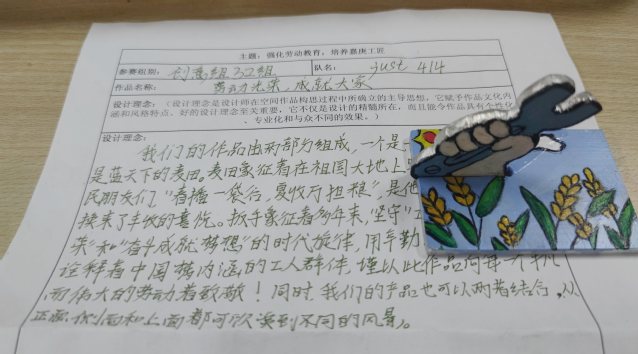 主题：强化劳动教育，培养嘉庚工匠
参赛组别：创意组 队名：just 414
作品名称：劳动光荣，成就大家
设计理念：（设计理念是设计师在空间作品构思过程中所确立的主导思想，它赋予作品文化内
涵和风格特点。好的设计理念至关重要，它不仅是设计的精髓所在，而且能令作品具有个性化
、专业化和与众不同的效果。）
设计理念：
我们的作品由两部分组成，一个是
是蓝天下的麦田。麦田象征着在祖国大地上
民朋友们"春播一袋谷，夏收万担穗"，是他
换来了丰收的喜悦。扳手象征着多年来，坚守"工
荣"和"奋斗成就梦想"的时代旋律，用辛勤
诠释着中国精神内涵的工人群体，谨以此作品向每一个平凡
而伟大的劳动者致敬！同时，我们的产品也可以两者结合，从
正面、侧面和上面都可欣赏到不同的风景。